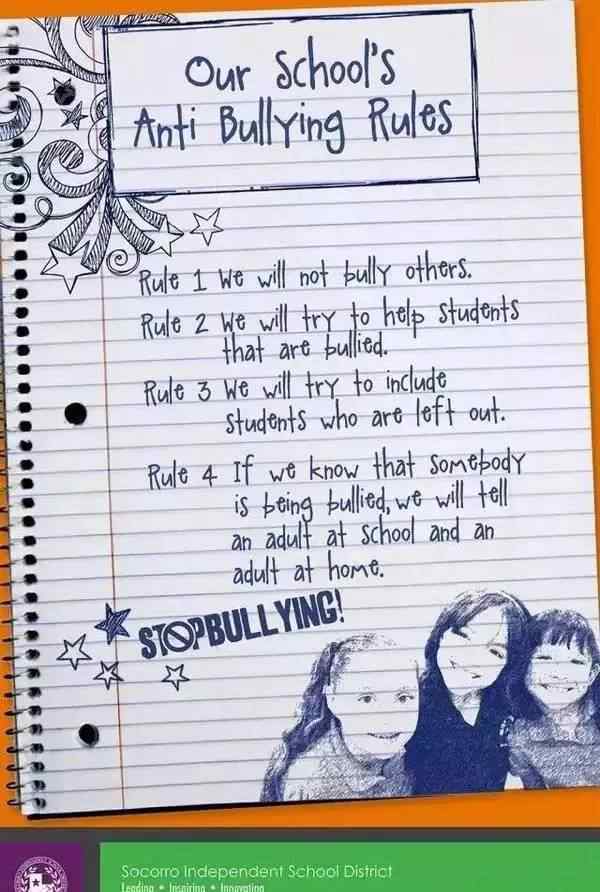 Our School's
Anti Bullying Rules
Rule 1 We will not bully others.
Rule 2 We will try to help students
that are bullied.
Rule 3 We will try to include
students who are left out.
Rule 4 If we know that somebody
is being bullied, we will tell
an adult at school and an
adult at home.
STOPBULLYING!
Socorro Independent School District
Leading • Inspiring • Innovating